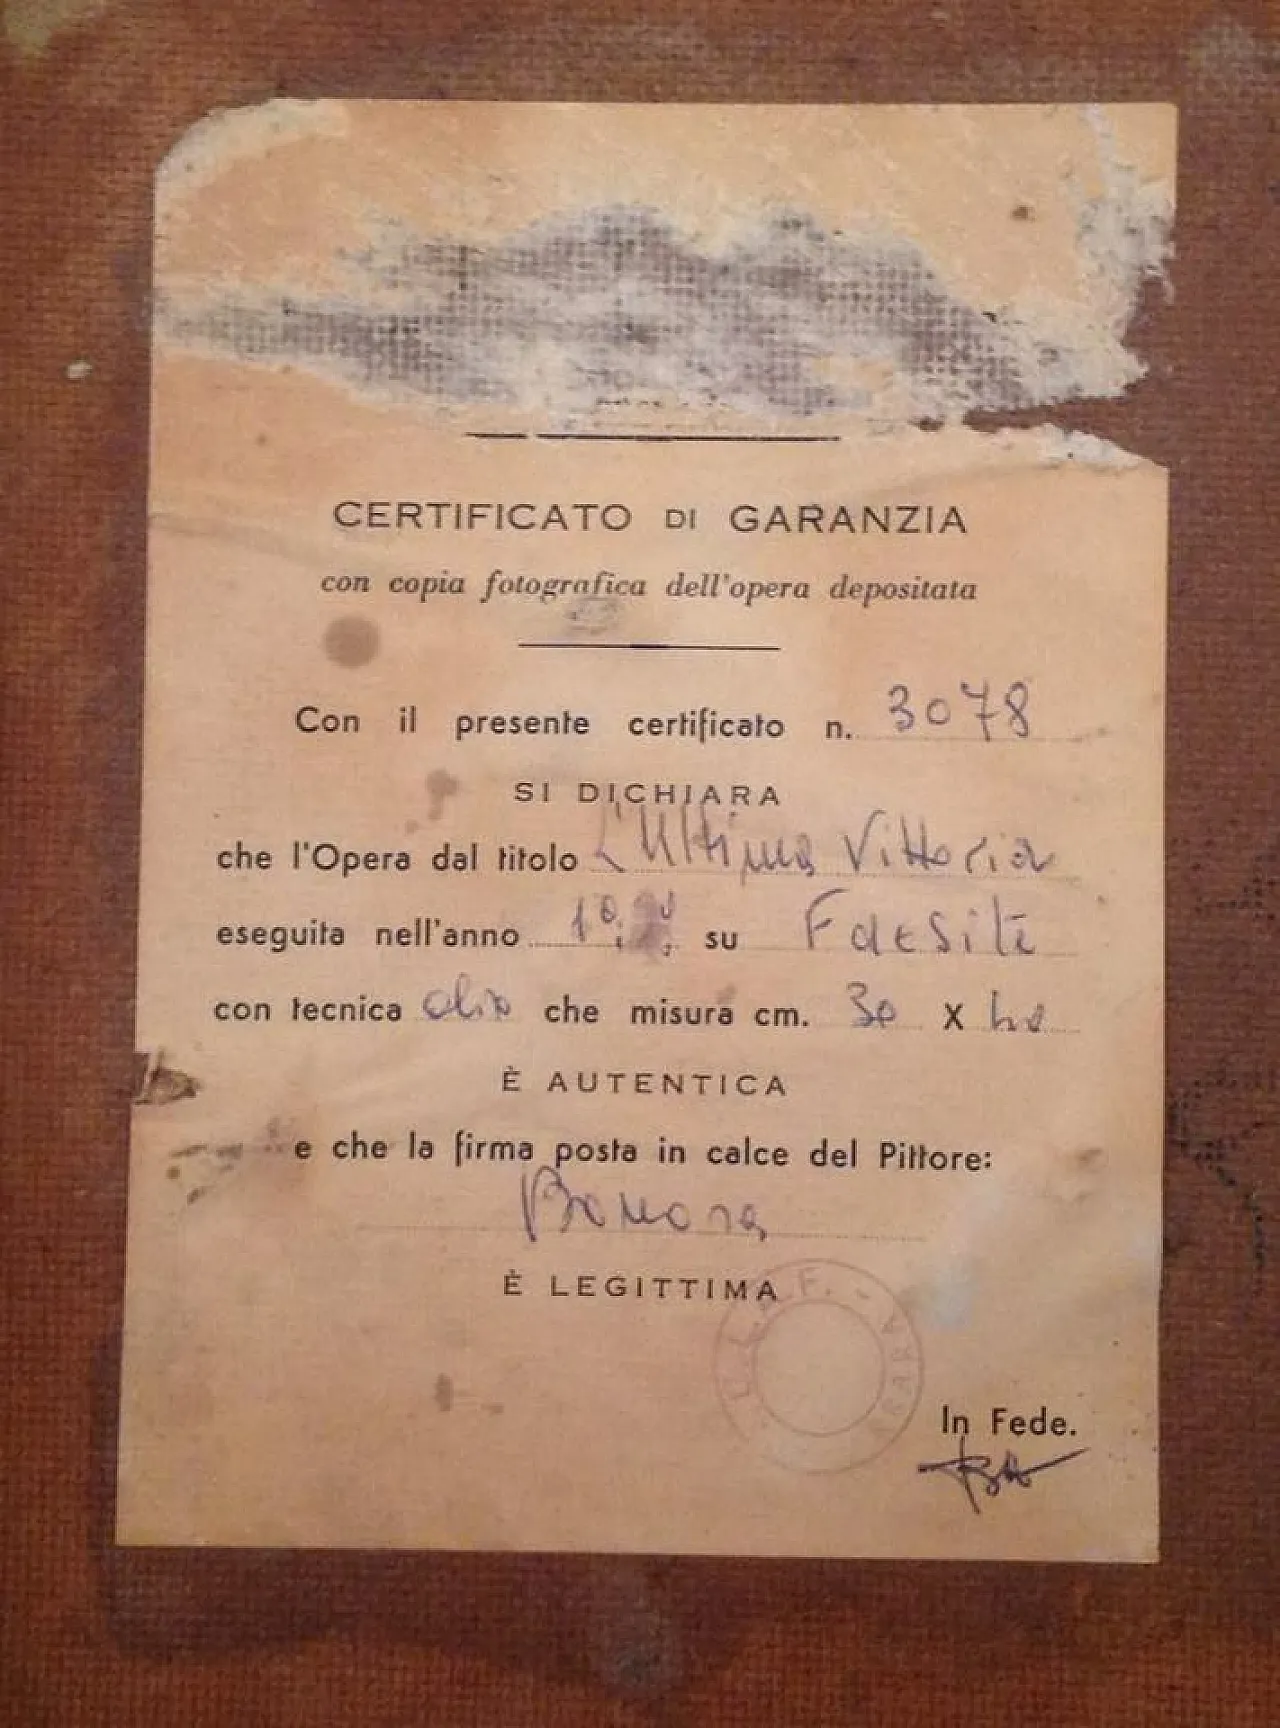 CERTIFICATO DI GARANZIA
con copia fotografica dell'opera depositata
Con il presente certificato n. 3078
SI DICHIARA
che l'Opera dal titolo L'Ultima Vittoria
eseguita nell'anno su Faesite
con tecnica olio che misura cm. 30 X
È AUTENTICA
e che la firma posta in calce del Pittore:
Bonora
È LEGITTIMA
In Fede.